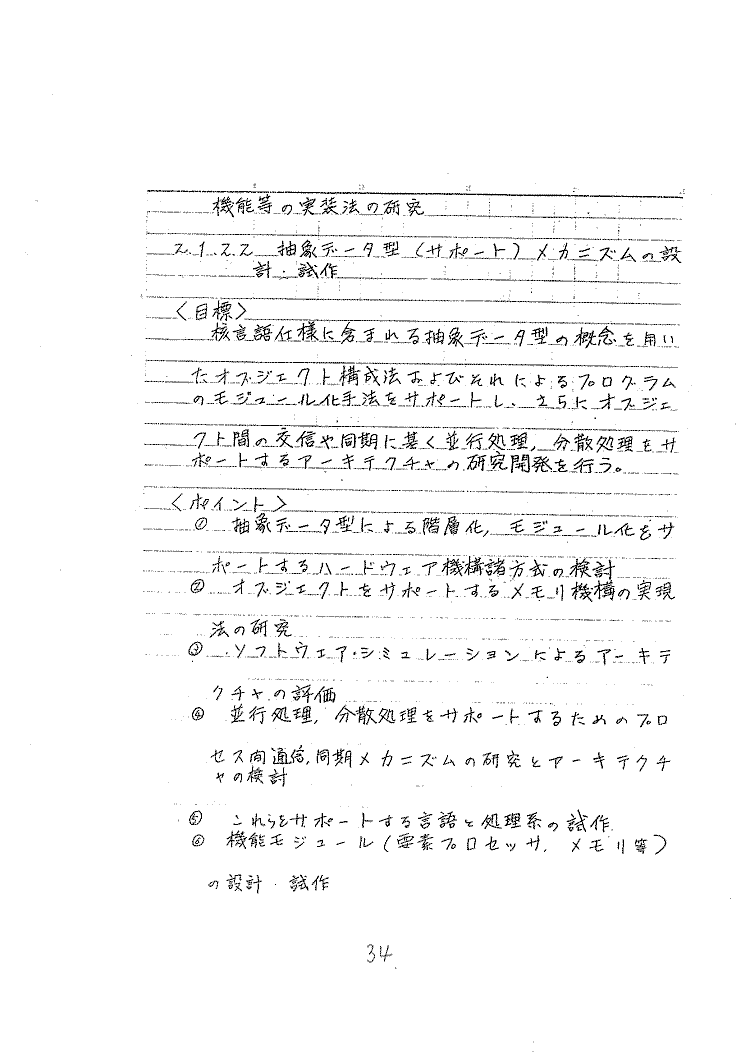 機能等の実装法の研究
2.1.2.2 抽象データ型(サポート)メカニズムの設
計・試作
〈目標〉
核言語仕様に含まれる抽象データ型の概念を用い
たオブジェクト構成法およびそれによるプログラム
のモジュール化手法をサポートし、さらにオブジェ
クト間の交信や同期に基く並行処理,分散処理をサ
ポートするアーキテクチャの研究開発を行う。
〈ポイント〉
① 抽象データ型による階層化,モジュール化をサ
ポートするハードウェア機構諸方式の検討
② オブジェクトをサポートするメモリ機構の実現
法の研究
③ ソフトウェア・シミュレーションによるアーキテ
クチャの評価
④ 並行処理,分散処理をサポートするためのプロ
セス間通信,同期メカニズムの研究とアーキテクチ
ャの検討
⑤ これらをサポートする言語と処理系の試作
⑥ 機能モジュール(要素プロセッサ,メモリ等)
の設計・試作
34